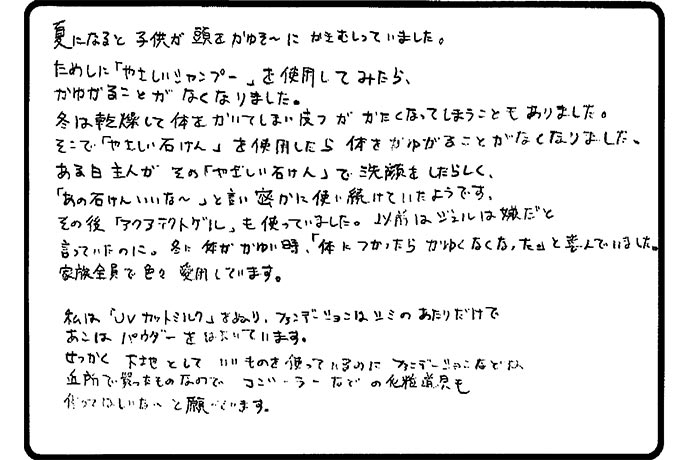 夏になると子供が頭をかゆそ〜にかきむしっていました。
ためしに「やさしいシャンプー」を使用してみたら、
かゆがることがなくなりました。
冬は乾燥して体をかいてしまい皮フがかたくなってしまうこともありました。
そこで「やさしい石けん」を使用したら体をかゆがることがなくなりました、
ある日主人がその「やさしい石けん」で洗顔をしたらしく、
「あの石けんいいな〜」と言い密かに使い続けていたようです、
その後「アクアテクトゲル」も使っていました。以前はジェルは嫌だと
言っていたのに。冬に体がかゆい時、「体につかったらかゆくなくなった」と喜んでいました。
家族全員で色々愛用しています。
私は「UVカットミルク」をぬり、ファンデーションはシミのあたりだけで
あとはパウダーをはたいています。
せっかく下地としていいものを使っているのにファンデーションなどは
近所で買ったものなのでコンシーラーなどの化粧道具も
作ってほしいな〜と願っています。